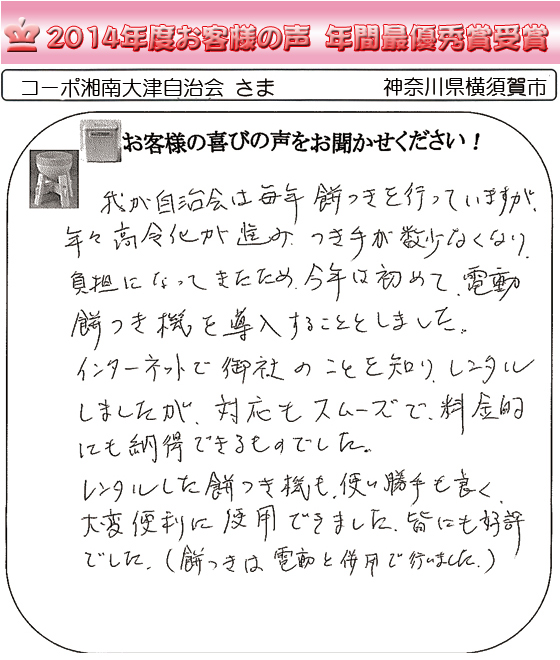 2014年度お客様の声 年間最優秀賞受賞
コーポ湘南大津自治会 さま 神奈川県横須賀市
お客様の喜びの声をお聞かせください！
我が自治会は毎年餅つきを行っていますが、
年々高令化が進み、つき手が数少なくなり、
負担になってきたため、今年は初めて、電動
餅つき機を導入することとしました。
インターネットで御社のことを知り、レンタル
しましたが、対応もスムーズで、料金的
にも納得できるものでした。
レンタルした餅つき機も、使い勝手も良く、
大変便利に使用できました。皆にも好評
でした。(餅つきは電動と併用で行いました。)